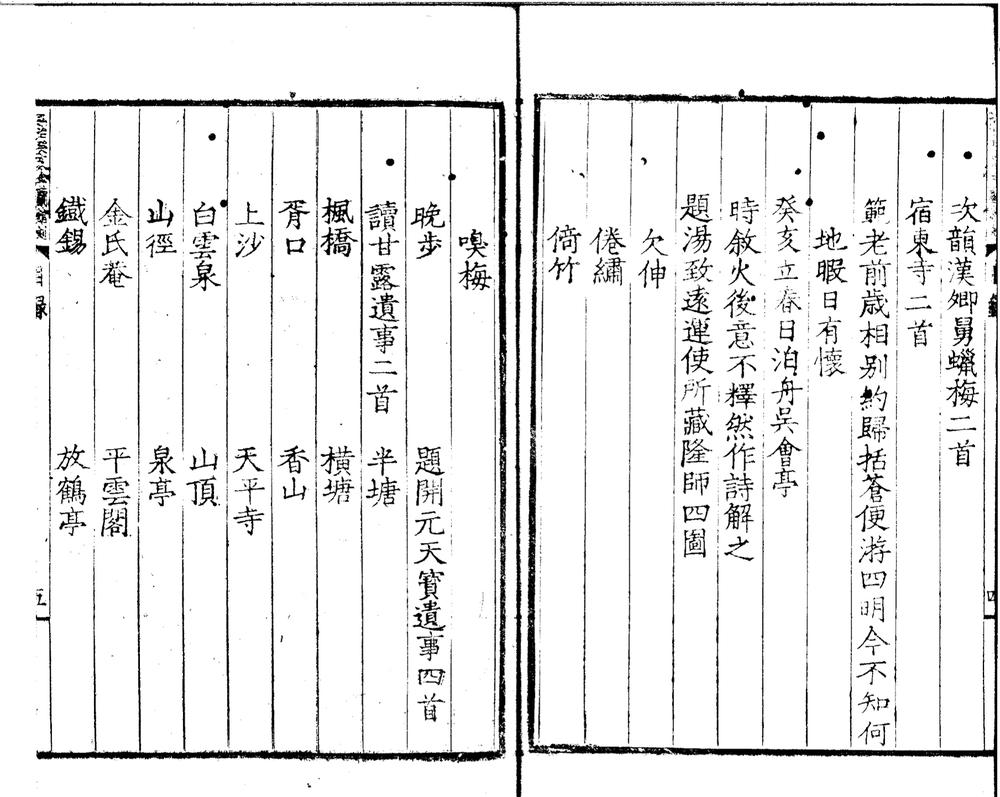 次韻漢卿舅蠟梅二首
宿東寺二首
範老前歲相别約歸括蒼便游四明今不知何
地暇日有懷
癸亥立春日泊舟吳會亭
時敘火後意不釋然作詩解之
題湯致遠運使所藏隆師四圖
欠伸
倦繡
倚竹
嗅梅
晚步 題開元天寶遺事四首
讀甘露遺事二首 半塘
楓橋 橫塘
胥口 香山
上沙 天平寺
白雲泉 山頂
山徑 泉亭
金氏菴 平雲閣
鐵錫 放鶴亭
目録 五